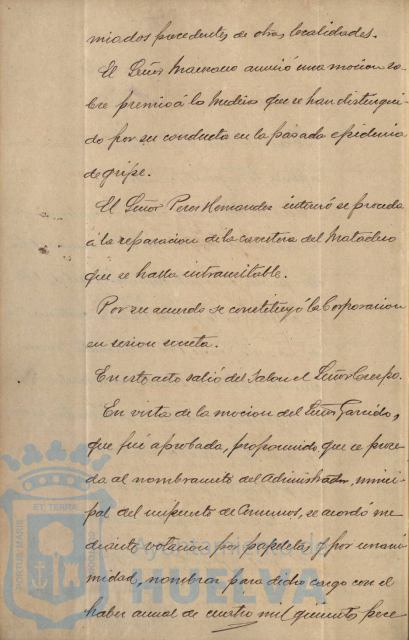 miados procedentes de otras localidades.
El Señor Macnano anunció una mocion so-
bre premio á los Medicos que se han distingui-
do por su conducta en la pasada epidemia
de gripe.
El Señor Peros Hernandez interesó se proceda
á la reparacion de la carretera del Matadero
que se halla intransitable.
Por su acuerdo se constituyó la Corporacion
en sesion secreta.
En este acto salió del Salon el Señor Crespo.
En vista de la mocion del Señor Garrido,
que fué aprobada, proponiendo que se proce-
da al nombramiento del Administrador, munici-
pal del impuesto de Consumos, se acordó me-
diante votacion por papeletas y por unani-
midad, nombrar para dicho cargo con el
haber anual de cuatro mil quinientas pese
PORTUS MARIS ET TERRÆ CUSTODIA
Ayuntamiento de
HUELVA